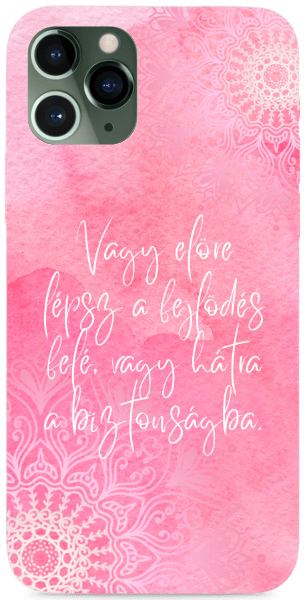 Vagy előre
lépsz a fejlődés
felé, vagy hátra
a biztonságba.